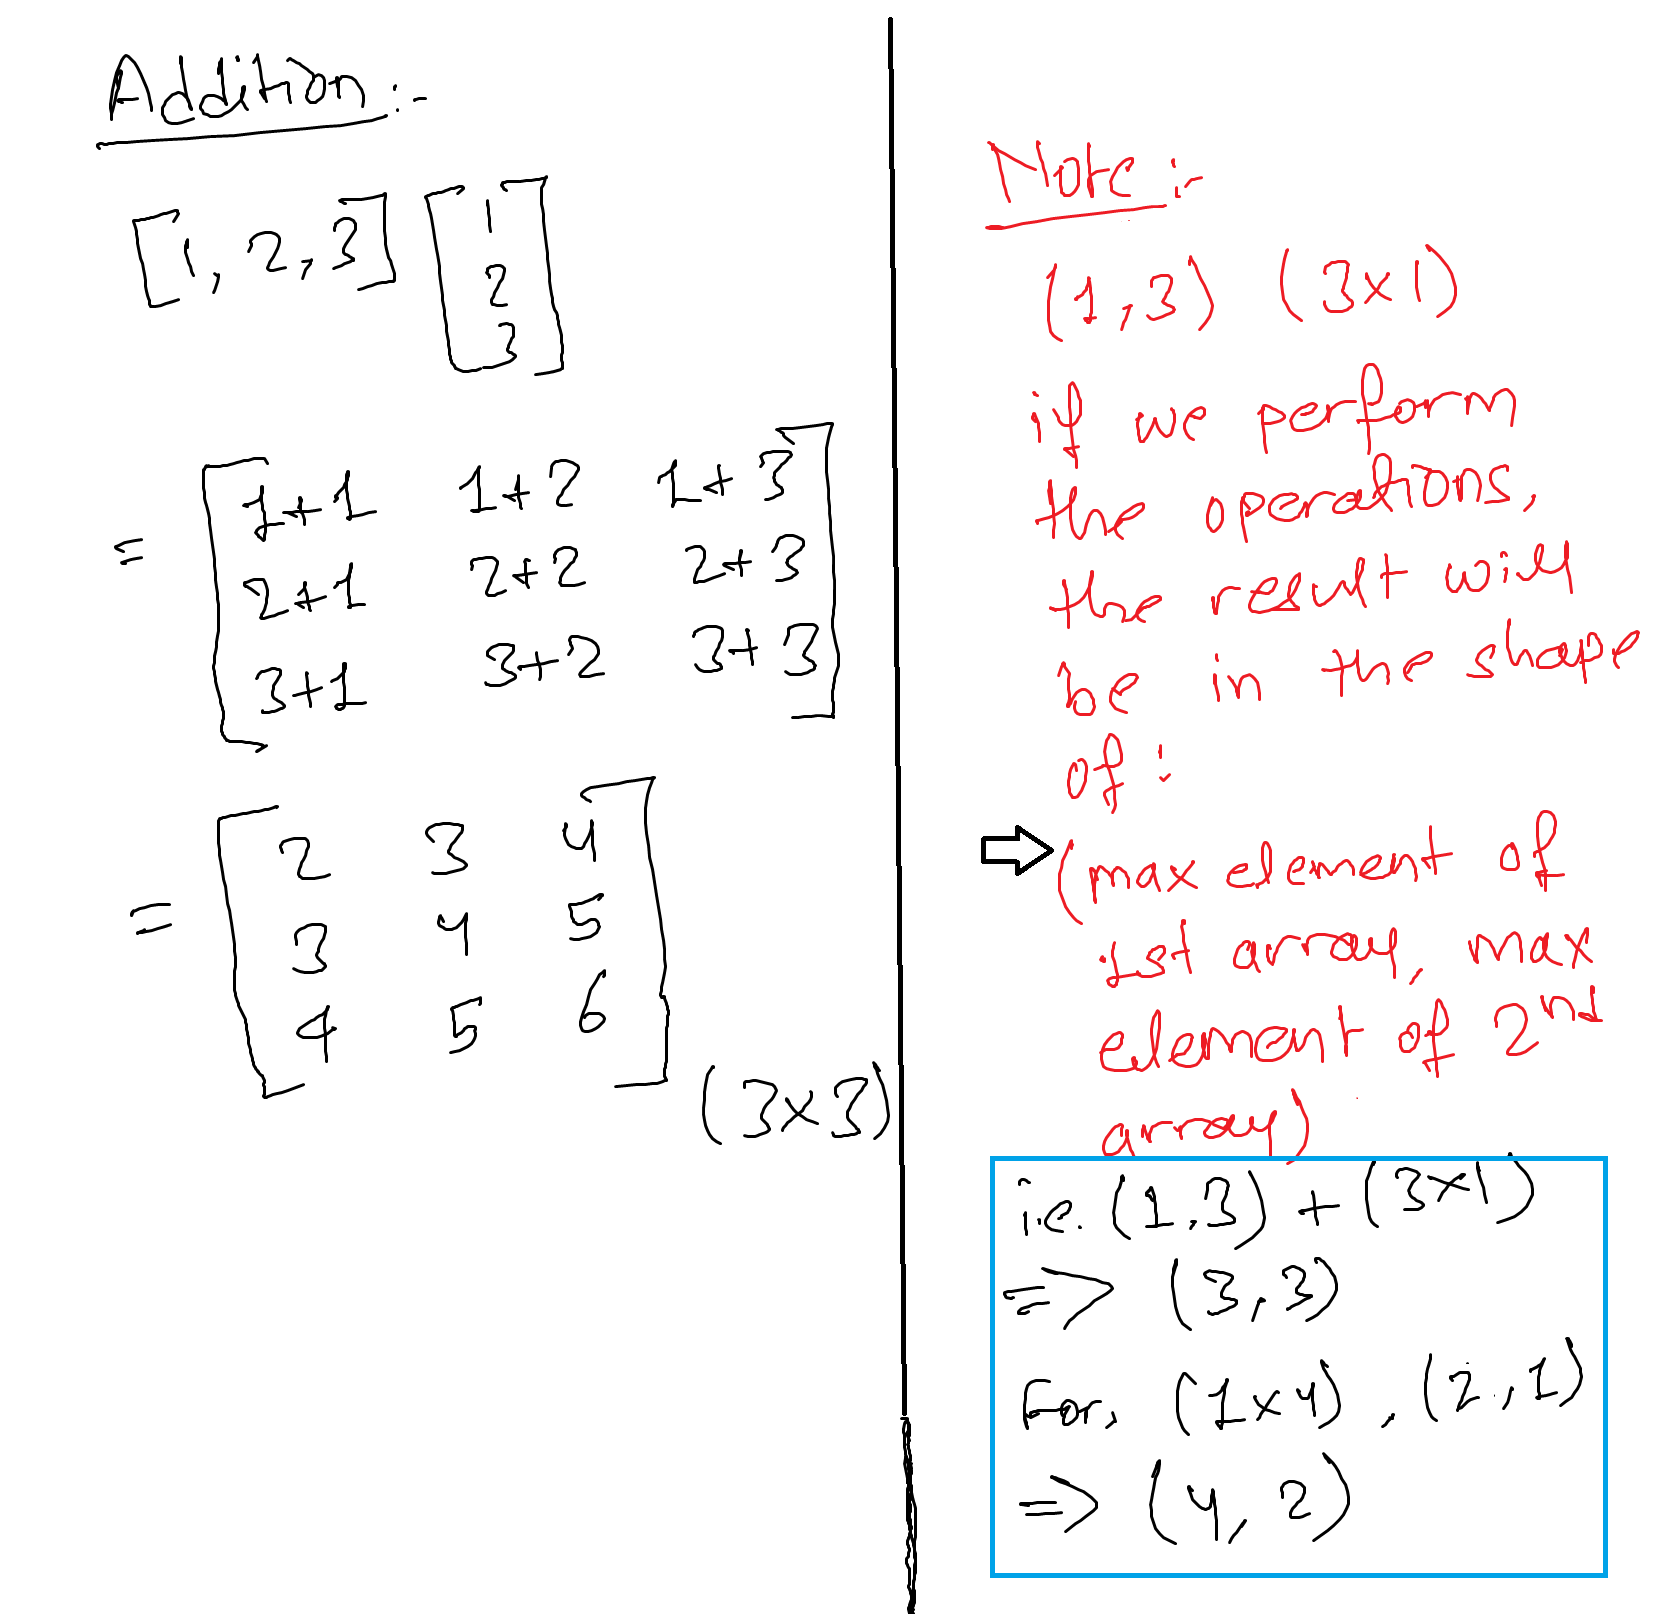 Addition :-
[1, 2, 3] [1
2
3]
= [1+1 1+2 1+3
2+1 2+2 2+3
3+1 3+2 3+3]
= [2 3 4
3 4 5
4 5 6]
(3×3)
Note :-
(1,3) (3×1)
if we perform
the operations,
the result will
be in the shape
of :
(max element of
1st array, max
element of 2nd
array)
i.e. (1,3) + (3×1)
=> (3,3)
For, (1×4) , (2,1)
=> (4, 2)